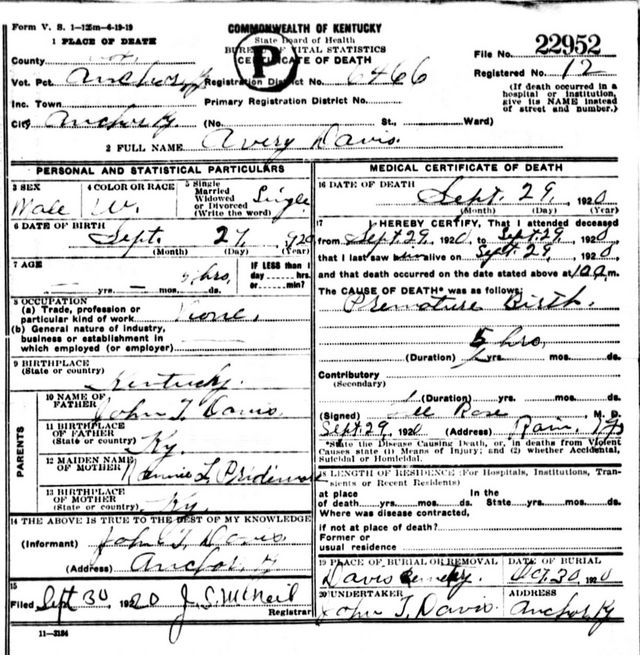 Form V. S. 1—125m—6-19-19
COMMONWEALTH OF KENTUCKY
State Board of Health
BUREAU OF VITAL STATISTICS
CERTIFICATE OF DEATH
P
File No. 22952
Registered No. 12
(If death occurred in a hospital or institution, give its NAME instead of street and number.)
1 PLACE OF DEATH
County
Vot. Pct. Anchor, Ky Registration District No. 6466
Inc. Town Primary Registration District No.
City Anchor, Ky (No. St., Ward)
2 FULL NAME Avery Davis.
PERSONAL AND STATISTICAL PARTICULARS
3 SEX Male
4 COLOR OR RACE W.
5 Single Married Widowed or Divorced (Write the word) Single
6 DATE OF BIRTH Sept. 29, 1920
(Month) (Day) (Year)
7 AGE
yrs. 5 hrs,
IF LESS than 1 day hrs. or min.?
8 OCCUPATION
(a) Trade, profession or particular kind of work None,
(b) General nature of industry, business or establishment in which employed (or employer)
9 BIRTHPLACE
(State or country) Kentucky.
PARENTS
10 NAME OF FATHER John T. Davis.
11 BIRTHPLACE OF FATHER
(State or country) Ky.
12 MAIDEN NAME OF MOTHER Nannie L. Pridemore
13 BIRTHPLACE OF MOTHER
(State or country) Ky.
14 THE ABOVE IS TRUE TO THE BEST OF MY KNOWLEDGE
(Informant) John T. Davis
(Address) Anchor, Ky
15
Filed Sept 30 1920 J. S. McNeil
Registrar
11—3184
MEDICAL CERTIFICATE OF DEATH
16 DATE OF DEATH Sept. 29, 1920
(Month) (Day) (Year)
17 I HEREBY CERTIFY, That I attended deceased
from Sept. 29, 1920, to Sept. 29, 1920,
that I last saw alive on Sept. 29, 1920
and that death occurred on the date stated above at 10 a m.
The CAUSE OF DEATH* was as follows:
Premature Birth.
5 hrs,
(Duration) yrs. mos. ds.
Contributory
(Secondary)
(Duration) yrs. mos. ds.
(Signed) Rose, M. D.
Sept. 29, 1920 (Address)
*State the Disease Causing Death, or, in deaths from Violent Causes state (1) Means of Injury; and (2) whether Accidental, Suicidal or Homicidal.
18 LENGTH OF RESIDENCE (For Hospitals, Institutions, Transients or Recent Residents)
at place In the
of death yrs. mos. ds. State yrs. mos. ds.
Where was disease contracted,
if not at place of death?
Former or
usual residence
19 PLACE OF BURIAL OR REMOVAL DATE OF BURIAL
Davis Cemetery. Oct. 30 1920
20 UNDERTAKER ADDRESS
John T. Davis. Anchor, Ky